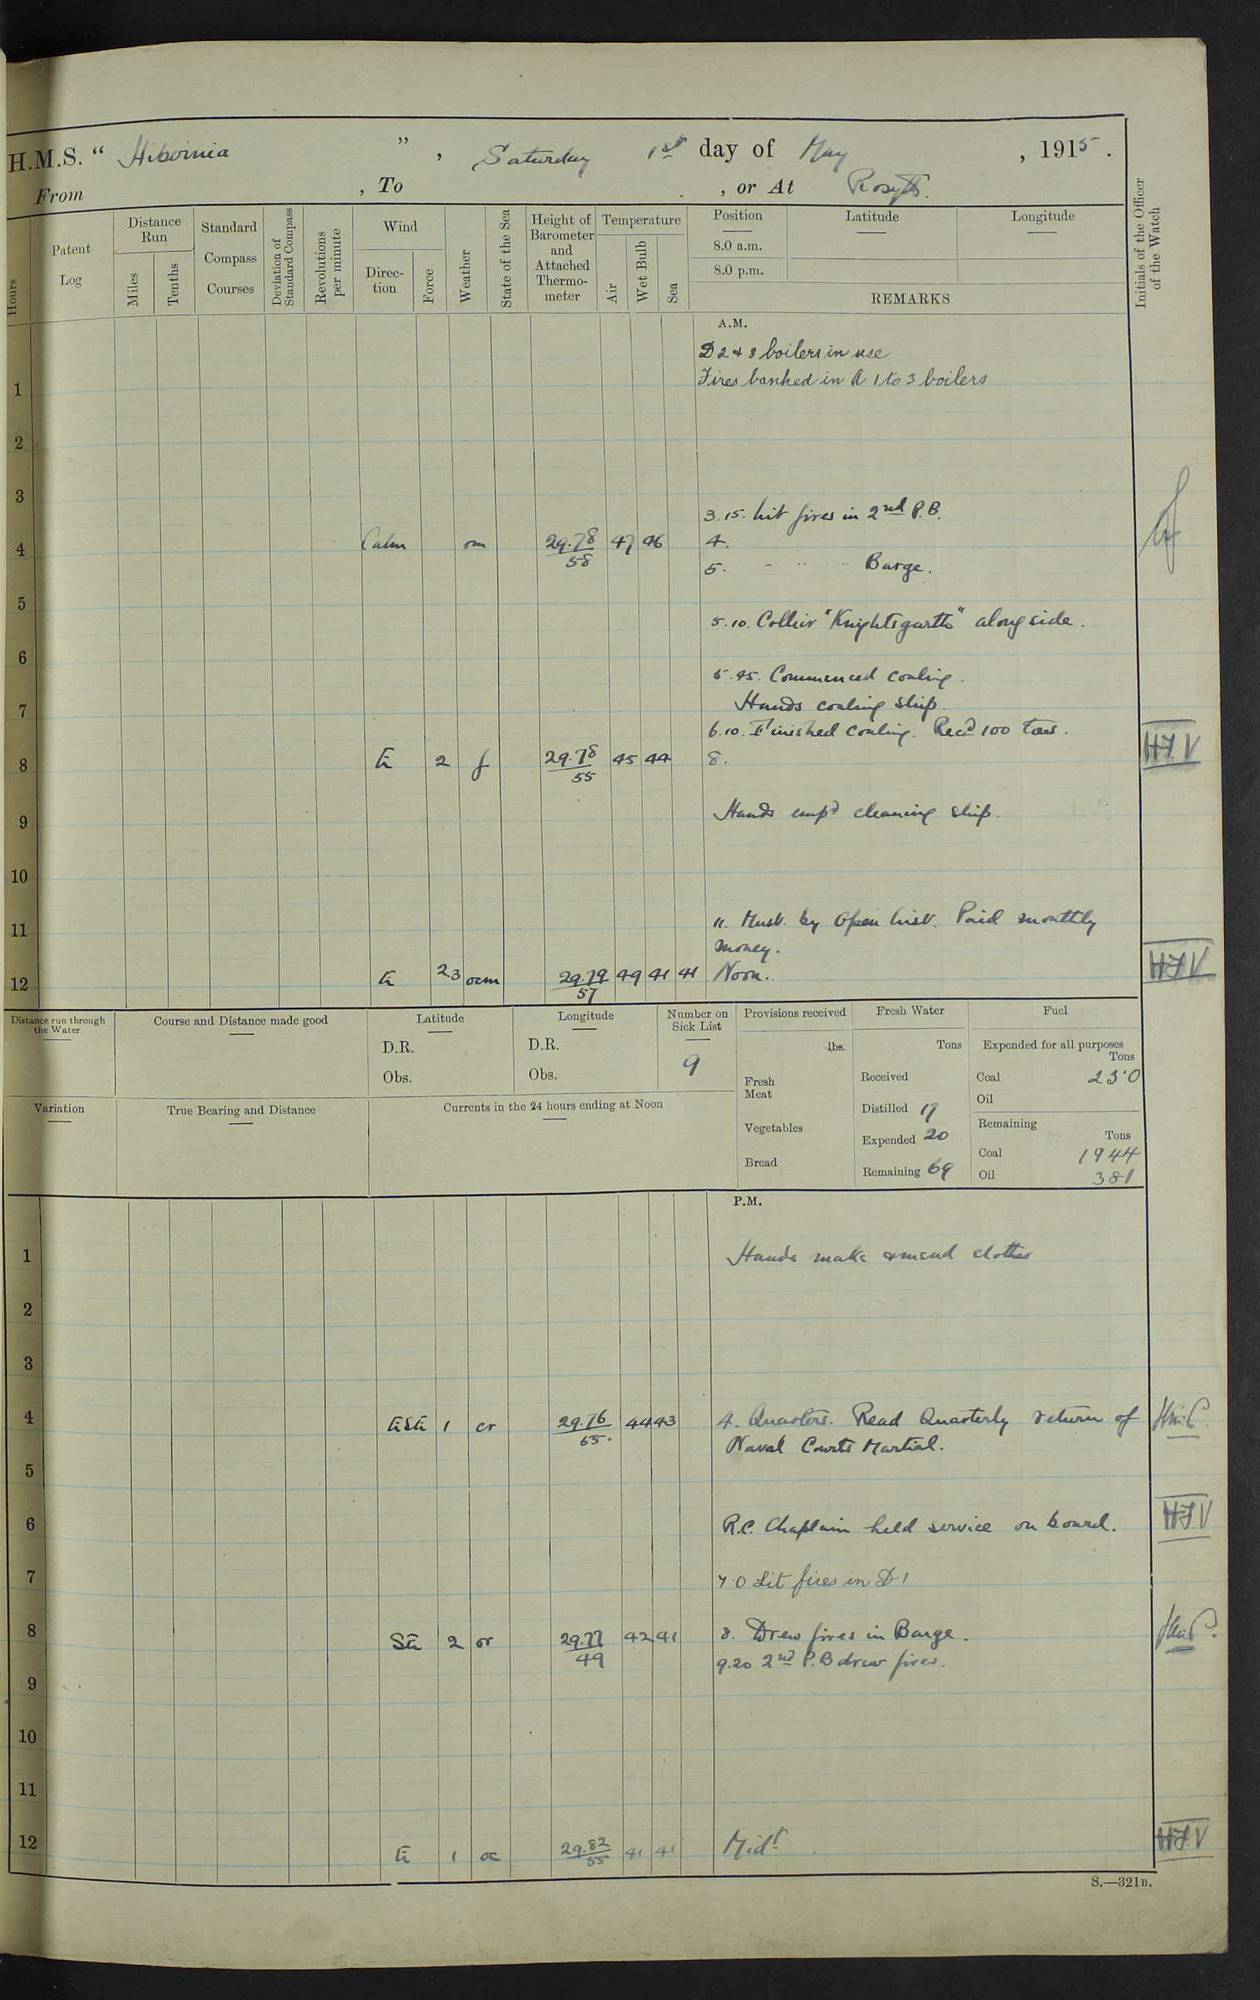 H.M.S. " Hibernia " , Saturday 1st day of May , 1915 .
From , To , or At Rosyth.
Hours
Patent Log
Distance Run
Miles
Tenths
Standard Compass Courses
Deviation of Standard Compass
Revolutions per minute
Wind
Direc-tion
Force
Weather
State of the Sea
Height of Barometer and Attached Thermo-meter
Temperature
Air
Wet Bulb
Sea
Position
Latitude
Longitude
8.0 a.m.
8.0 p.m.
REMARKS
Initials of the Officer of the Watch
A.M.
D 2 & 3 boilers in use
1 Fires banked in A 1 to 3 boilers
2
3
3.15. Lit fires in 2nd P.B.
4 Calm om 29.78/58 47 46 4.
5. - " " Barge.
5
5.10. Collier "Knightsgarth" alongside.
6
5.45. Commenced coaling.
7 Hands coaling ship.
6.10. Finished coaling. Recd 100 tons.
8 E 2 f 29.78/55 45 44 8. HFV
9 Hands empd cleaning ship.
10
11 11. Must. by Open List. Paid monthly
money.
12 E 23 ocm 29.79/57 49 41 41 Noon. HFV
Distance run through the Water
Course and Distance made good
Latitude
Longitude
Number on Sick List
Provisions received
Fresh Water
Fuel
D.R. D.R. 9 lbs. Tons Expended for all purposes Tons
Obs. Obs. Fresh Meat Received Coal 23.0
Oil
Variation
True Bearing and Distance
Currents in the 24 hours ending at Noon
Distilled 17 Remaining
Vegetables Expended 20 Tons
Coal 1944
Bread Remaining 69 Oil 381
P.M.
1 Hands make & mend clothes
2
3
4 ESE 1 cr 29.76/65. 44 43 4. Quarters. Read Quarterly return of
Naval Courts Martial.
5
6 R.C. Chaplain held service on board. HFV
7 7 0 Lit fires in D 1
8 SE 2 or 29.77/49 42 41 8. Drew fires in Barge.
9.20 2nd P.B drew fires.
9
10
11
12 E 1 oc 29.82/55 41 41 Midt. HFV
S.—321B.